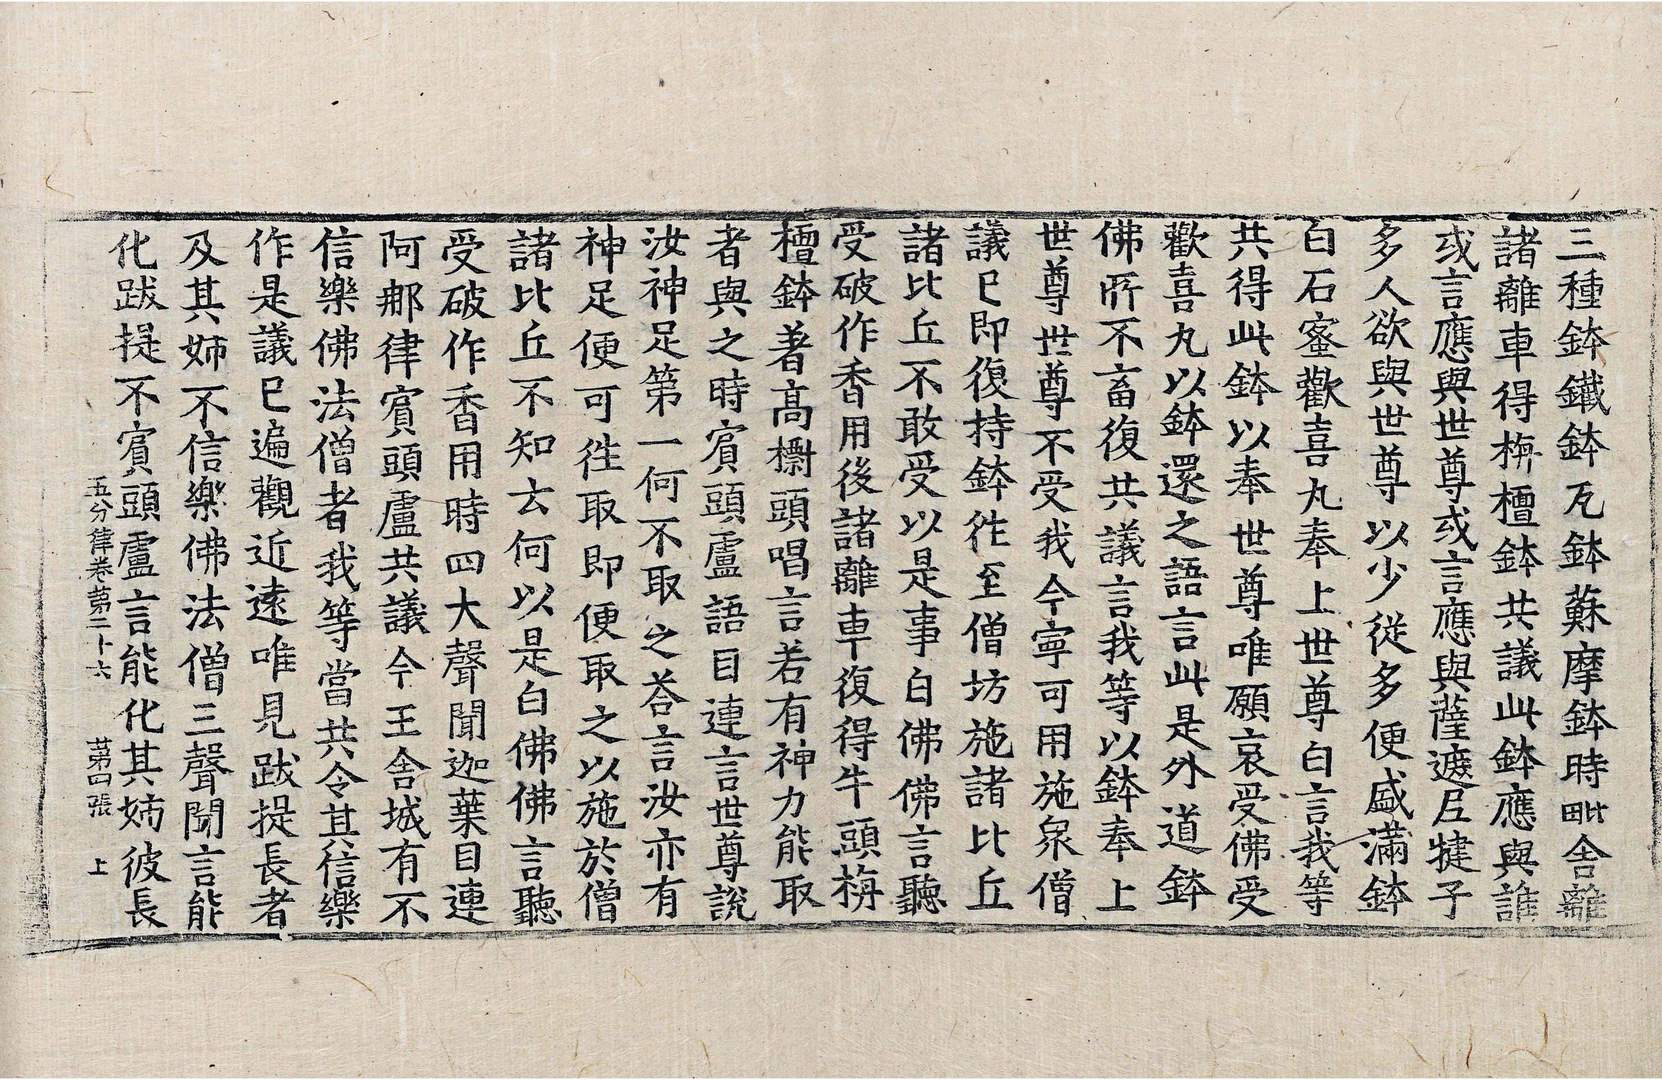 三種鉢鐵鉢瓦鉢蘇摩鉢時毗舍離
諸離車得栴檀鉢共議此鉢應與誰
或言應與世尊或言應與薩遮尼犍子
多人欲與世尊以少從多便盛滿鉢
白石蜜歡喜丸奉上世尊白言我等
共得此鉢以奉世尊唯願哀受佛受
歡喜丸以鉢還之語言此是外道鉢
佛所不畜復共議言我等以鉢奉上
世尊世尊不受我今寧可用施衆僧
議已即復持鉢徃至僧坊施諸比丘
諸比丘不敢受以是事白佛佛言聽
受破作香用後諸離車復得牛頭栴
檀鉢著高櫩頭唱言若有神力能取
者與之時賓頭盧語目連言世尊說
汝神足第一何不取之荅言汝亦有
神足便可徃取即便取之以施於僧
諸比丘不知云何以是白佛佛言聽
受破作香用時四大聲聞迦葉目連
阿那律賓頭盧共議今王舍城有不
信樂佛法僧者我等當共令其信樂
作是議已遍觀近遠唯見跋提長者
及其姉不信樂佛法僧三聲聞言能
化跋提不賓頭盧言能化其姉彼長
五分律卷苐二十六 苐四張 上